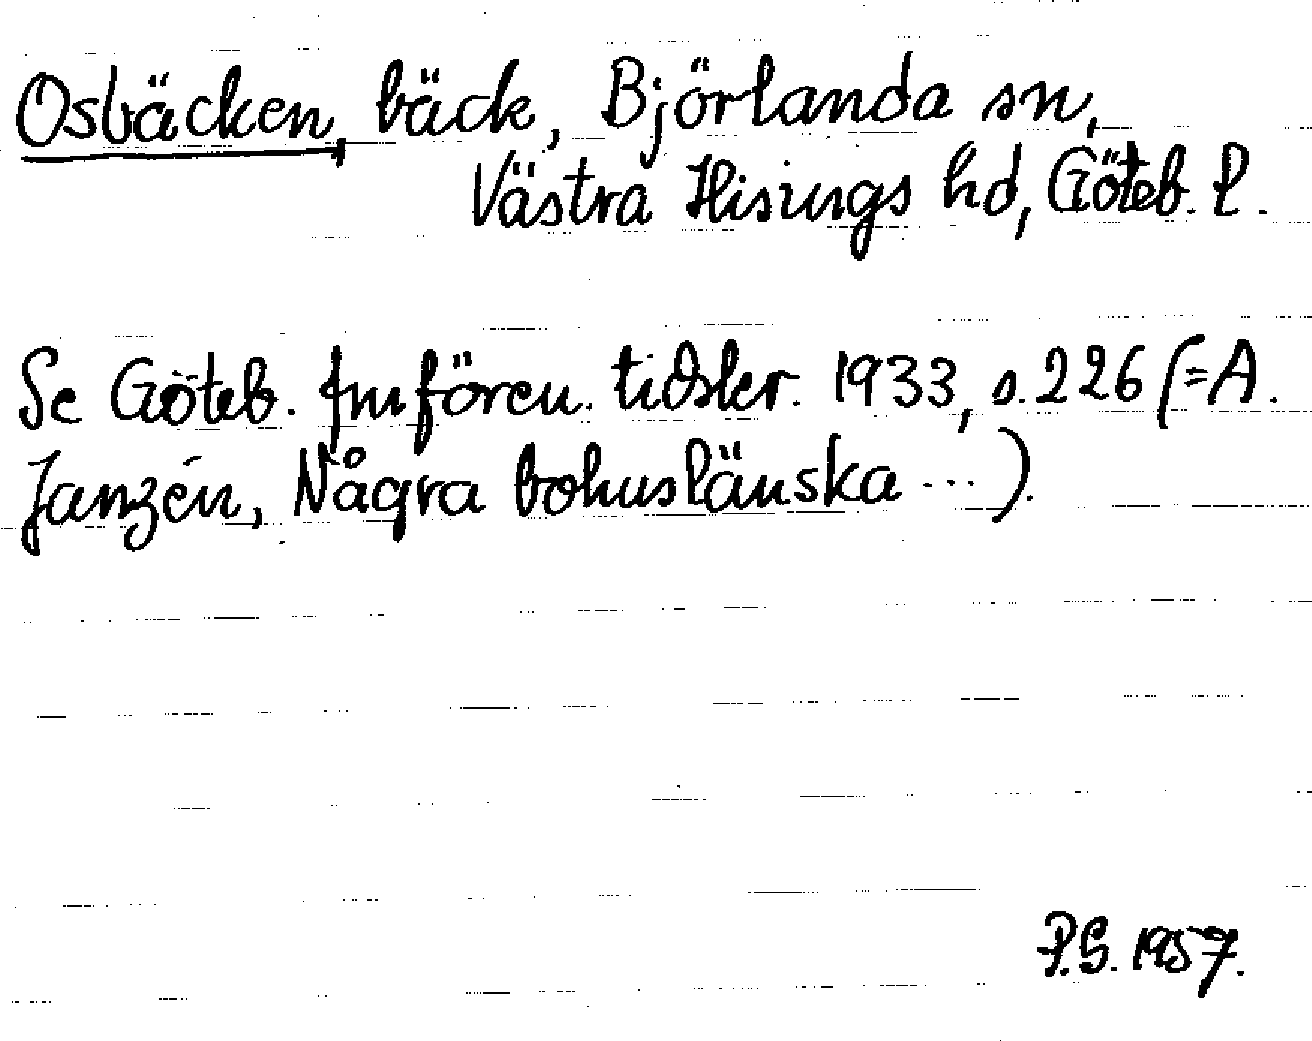 Osbäcken, bäck, Björlanda sn,
Västra Hisings hd, Göteb. l.
Se Göteb. fmfören. tidskr. 1933, s. 226 (= A.
Janzén, Några bohuslänska ...).
P.S. 1957.